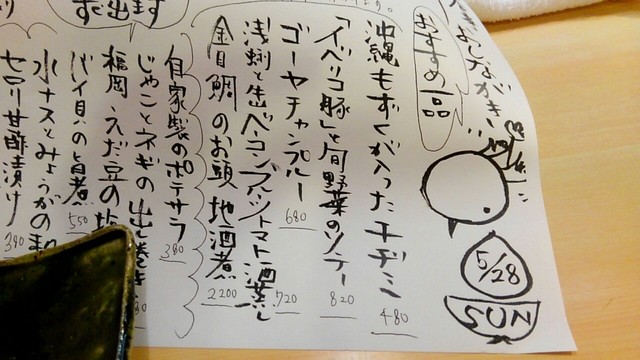 おすすめ一品
5/28
SUN
沖縄もずくが入ったチヂミ 480
「イベリコ豚」と旬野菜のソテー 820
ゴーヤチャンプルー 680
浅蜊と缶ベーコンプルントマト酒蒸し 720
金目鯛のお頭 地酒煮 2200
自家製のポテサラ 380
じゃことネギの出し巻き
福岡・えだ豆の塩
バイ貝の旨煮 550
水ナスとみょうがの和
セロリ甘酢漬け 390